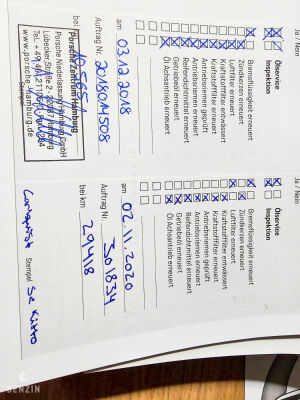 Ja / Nein
Ölservice
Inspektion
Bremsflüssigkeit erneuert
Zündkerzen erneuert
Luftfilter erneuert
Kraftstofffilter entwässert
Kraftstofffilter erneuert
Antriebsriemen geprüft
Antriebsriemen erneuert
Reifendichtmittel erneuert
Getriebeöl erneuert
Öl Achsantrieb erneuert
am 03.12.2018
Auftrag Nr.
bei
Porsche Zentrum Hamburg
Porsche Niederlassung Hamburg GmbH
Lübecker Straße 2 · 22087 Hamburg
Tel.: +49
www.porsche-hamburg.de
Ja / Nein
Ölservice
Inspektion
Bremsflüssigkeit erneuert
Zündkerzen erneuert
Luftfilter erneuert
Kraftstofffilter entwässert
Kraftstofffilter erneuert
Antriebsriemen geprüft
Antriebsriemen erneuert
Reifendichtmittel erneuert
Getriebeöl erneuert
Öl Achsantrieb erneuert
am 02.11.2020
Auftrag Nr. 301834
bei km 29418
Stempel
BENZIN